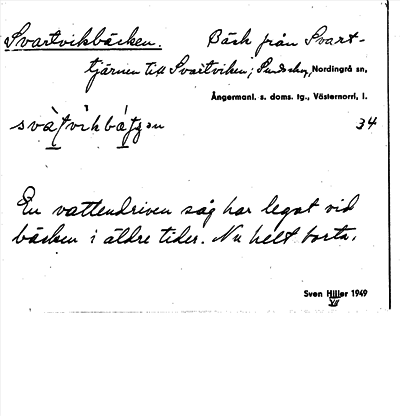 Svartvikbäcken. Bäck från Svart-
tjärnen till Svartviken; Nordingrå sn,
Ångermanl. s. doms. tg., Västernorrl. l.
34
En vattendriven såg har legat vid
bäcken i äldre tider. Nu helt borta.
Sven Hiller 1949
VII